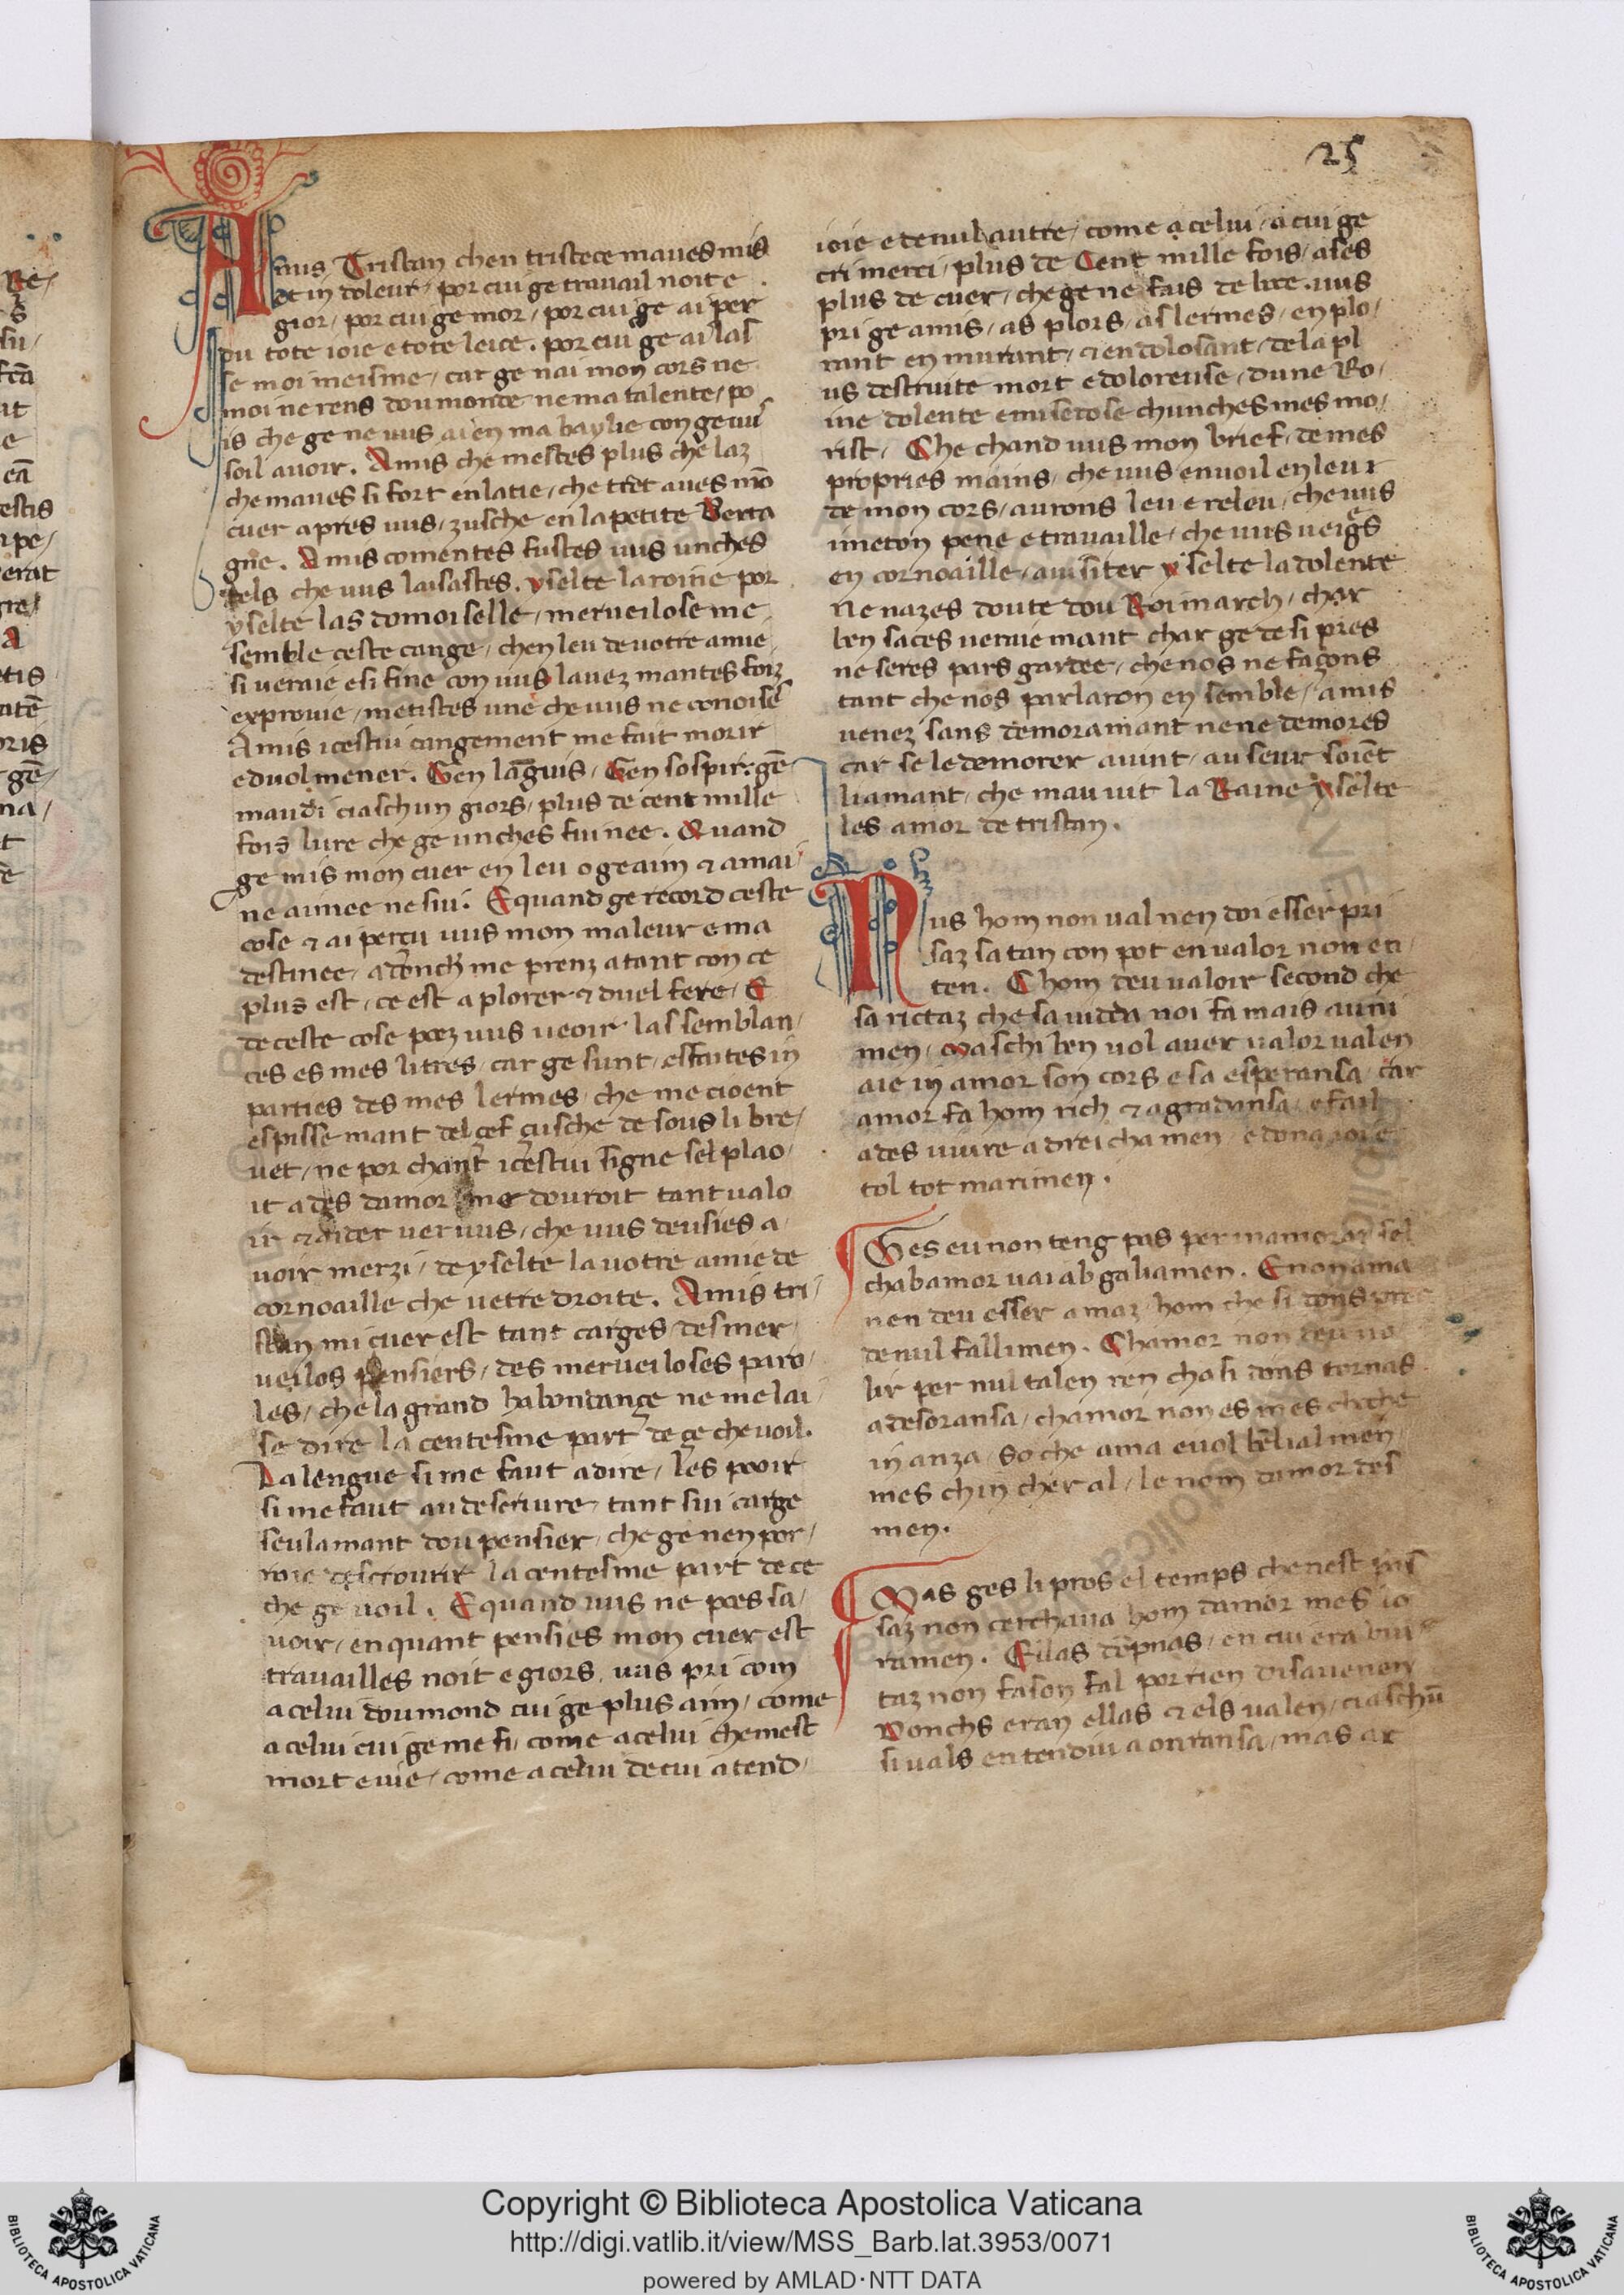 25
Amis Tristan chen tristece maues mis
et in doleur, por cui ge travail noit e
gior, por cui ge mor, por cui ge ai per
du tote ioie e tote leice. por cui ge ai las
se moi meisme, car ge nai mon cors ne
moi ne rens dou monde ne ma talente, po
is che ge ne uus ai en ma baylie con ge uu
soil auoir. Amis che mestes plus che laz
che maues si fort enlacie, che tret aues mō
cuer apres uus, zusche en la petite Berta
gne. Amis coment es fustes uus unches
tels che uus laisastes. yselte la roine por
yselte las domoiselle, merueilose me
semble ceste cange, chen leu de uotre amie
si ueraie e si fine con uus lauez mantes foiz
exprouie, metistes une che uus ne conoise
Amis icestui cangement me fait morir
e duol mener. Gen lāguis, Gen sospir. gē
maudi ciaschun giors, plus de cent mille
fois lure che ge unches fui nee. Quand
ge mis mon cuer en leu o ge aim & amai
ne aimee ne sui. E quand ge record ceste
cose & ai perçu uus mon maleur e ma
destinee, adonch me prenz a tant con ce
plus est, ce est a plorer & duel fere, E
de ceste cose poez uus ueoir las semblan,
ces es mes litres, car ge sunt, esfaites in
parties des mes lermes, che me cioent
espissemant del çef çusche de sous li bre,
uet, ne por chant icestui signe sel plao,
it ades damor me douroit tant ualo
ir & aider uer uus, che uus deusies a,
uoir merzi, de yselte la uotre amie de
cornoaille che uetre droite. Amis tri,
stan mi cuer est tant carges des mer,
ueilos pensiers, des merueiloses paro,
les, che la grand habondançe ne me lai
se dire la centesme part de çe che uoil.
La lengue si me faut a dire, les pooir
si me faut au descriure, tant sui carge
seulamant dou pensier, che ge nen por,
roie descrourir la centesme part de ce
che ge uoil. E quand uus ne poes sa,
uoir, en quant pensies mon cuer est
travailles noit e giors. uus pri com
a celui dou mond cui ge plus aim, come
a celui cui ge me fi, come a celui chemest
mort e uie, come a celui de cui atend,
ioie e de nul autre, come a celui, a cui ge
cri merci, plus de Cent mille fois, ases
plus de cuer, che ge ne fais de boce. uus
pri ge amis, as plors, as lermes, en plo,
rant en murant, & en dolosant, de la pl
us destruite mort e doloreuse, dune Ro,
ine dolente e miserose chunches mes mo,
rist, Che chand uus mon brief, de mes
propries mains, che uus enuoil en leur
de mon cors, aurons leu e releu, che uus
imeton pene e travaille, che uus ueiges
en cornoaille, auisiter yselte la dolente
Ne nazes doute dou Roi march, char
ben saces ueraiemant char ge de si pres
ne seres pars gardee, che nos ne façons
tant che nos parlaron en semble, amis
uenez sans demoramant ne ne demores
car se le demorer auint, au seur soiēt
liamant, che mau uit la Raine yselte
les amor de tristan.
Nus hom non ual nen doi esser pri
saz sa tan con pot en ualor non en,
ten. Chom deu ualoir second che
sa rictaz che sa uida noi fa mais auni
men, Mas chi ben uol auer ualor ualen
aie in amor son cors e sa esperansa, car
amor fa hom rich & agradansa, e fail
ades uiure adreichamen, e dona ioi e
tol tot marimen.
Ges eu non teng pas per inamorar sel
chab amor uai ab galiamen. E non ama
nen deu esser amaz, hom che si dons pre
de nul fallimen. Chamor non deu uo
lir per nul talen ren cha si dons tornas
a desoransa, chamor non es mes cheche
inanza, so che ama e uol ben lialmen,
mes chin cher al, le nom damor des
men.
Mas ges li pros el temps che nest pas
saz non cerchaua hom damor mes lo
ramen. Eilas depnas, en cui era biu
taz non fason fal por rien disauenen
Donchs eran ellas & els ualen, ciaschū
si uals entendiu a onransa, mas ar
Copyright © Biblioteca Apostolica Vaticana
http://digi.vatlib.it/view/MSS_Barb.lat.3953/0071
powered by AMLAD·NTT DATA
BIBLIOTECA APOSTOLICA VATICANA
BIBLIOTECA APOSTOLICA VATICANA